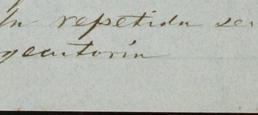 la repetida ser
gecutoria